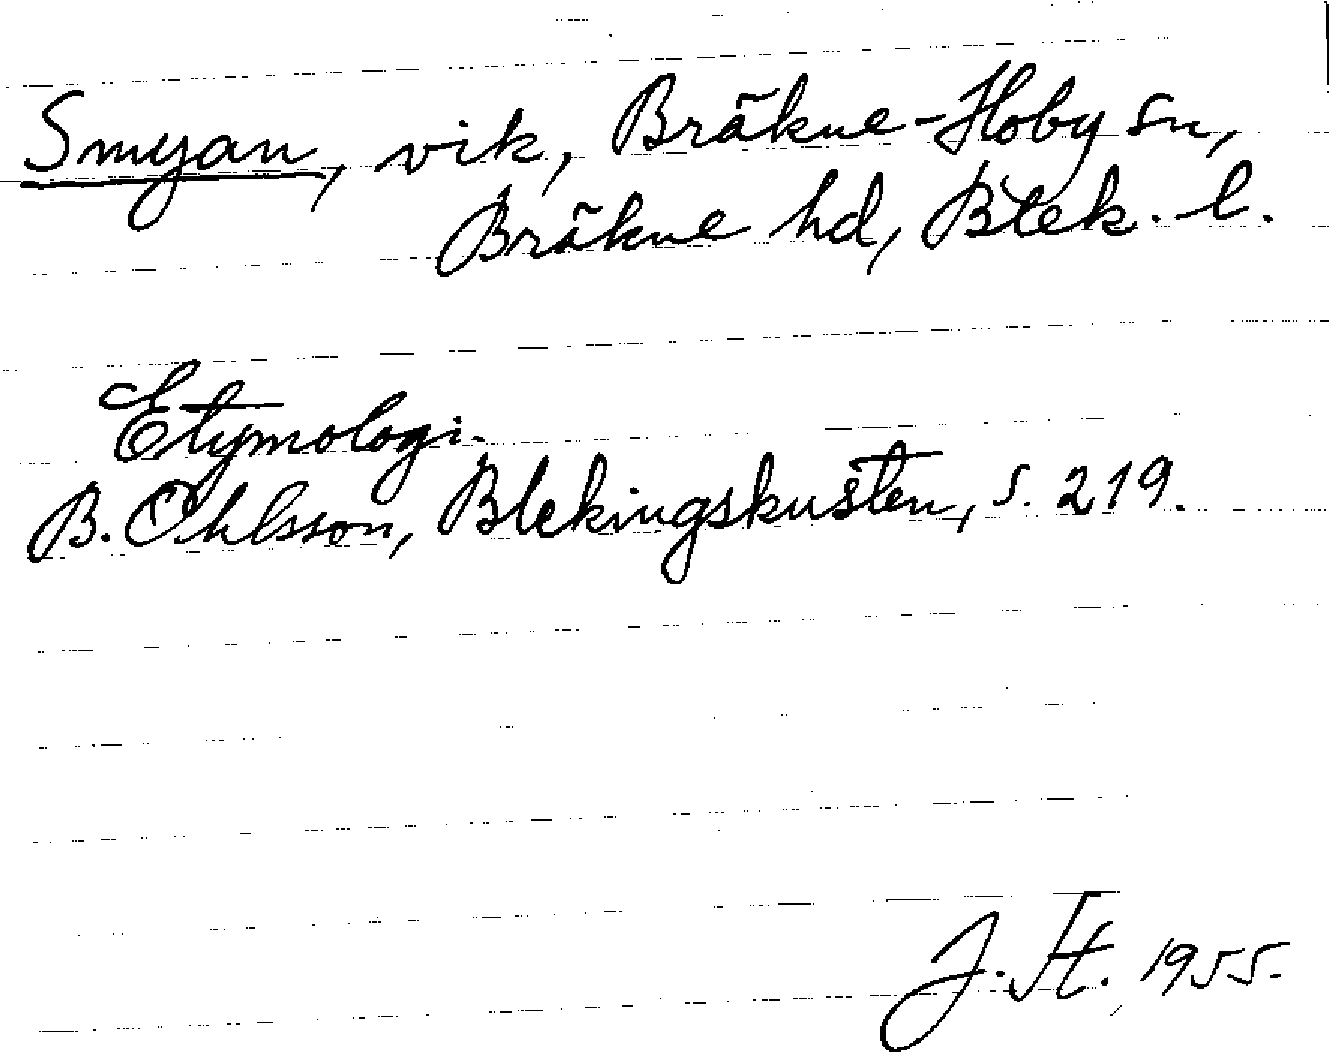 Smyan, vik, Bräkne-Hoby sn,
Bräkne hd, Blek. l.
Etymologi.
B. Ohlsson, Blekingskusten, s. 219.
1955.